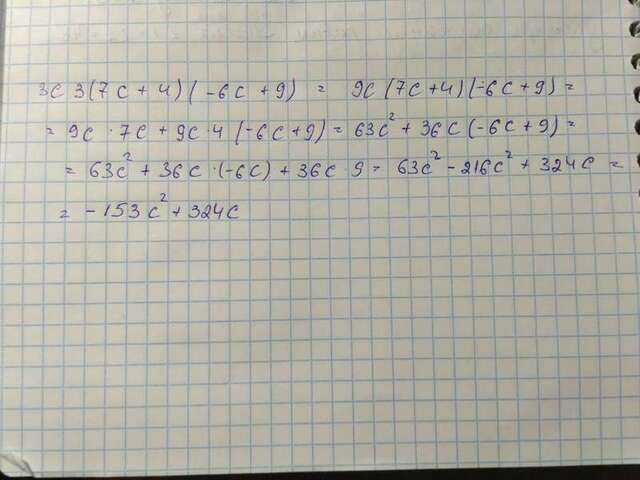 3c 3(7c + 4)(-6c + 9) = 9c(7c+4)(-6c+9) =
= 9c · 7c + 9c · 4 (-6c+9) = 63c² + 36c (-6c + 9) =
= 63c² + 36c · (-6c) + 36c · 9 = 63c² - 216c² + 324c =
= -153c² + 324c